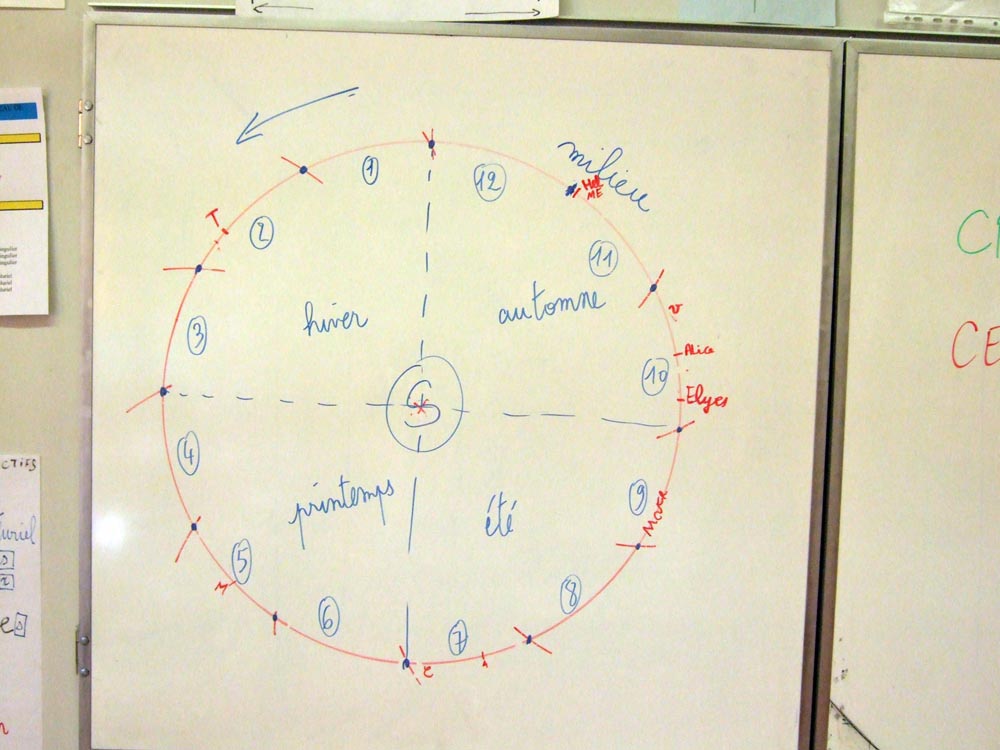 milieu
1
12
2
T
11
hiver
automne
3
v
Alice
10
Elyes
S
4
printemps
été
9
5
M
6
8
7
e
CE